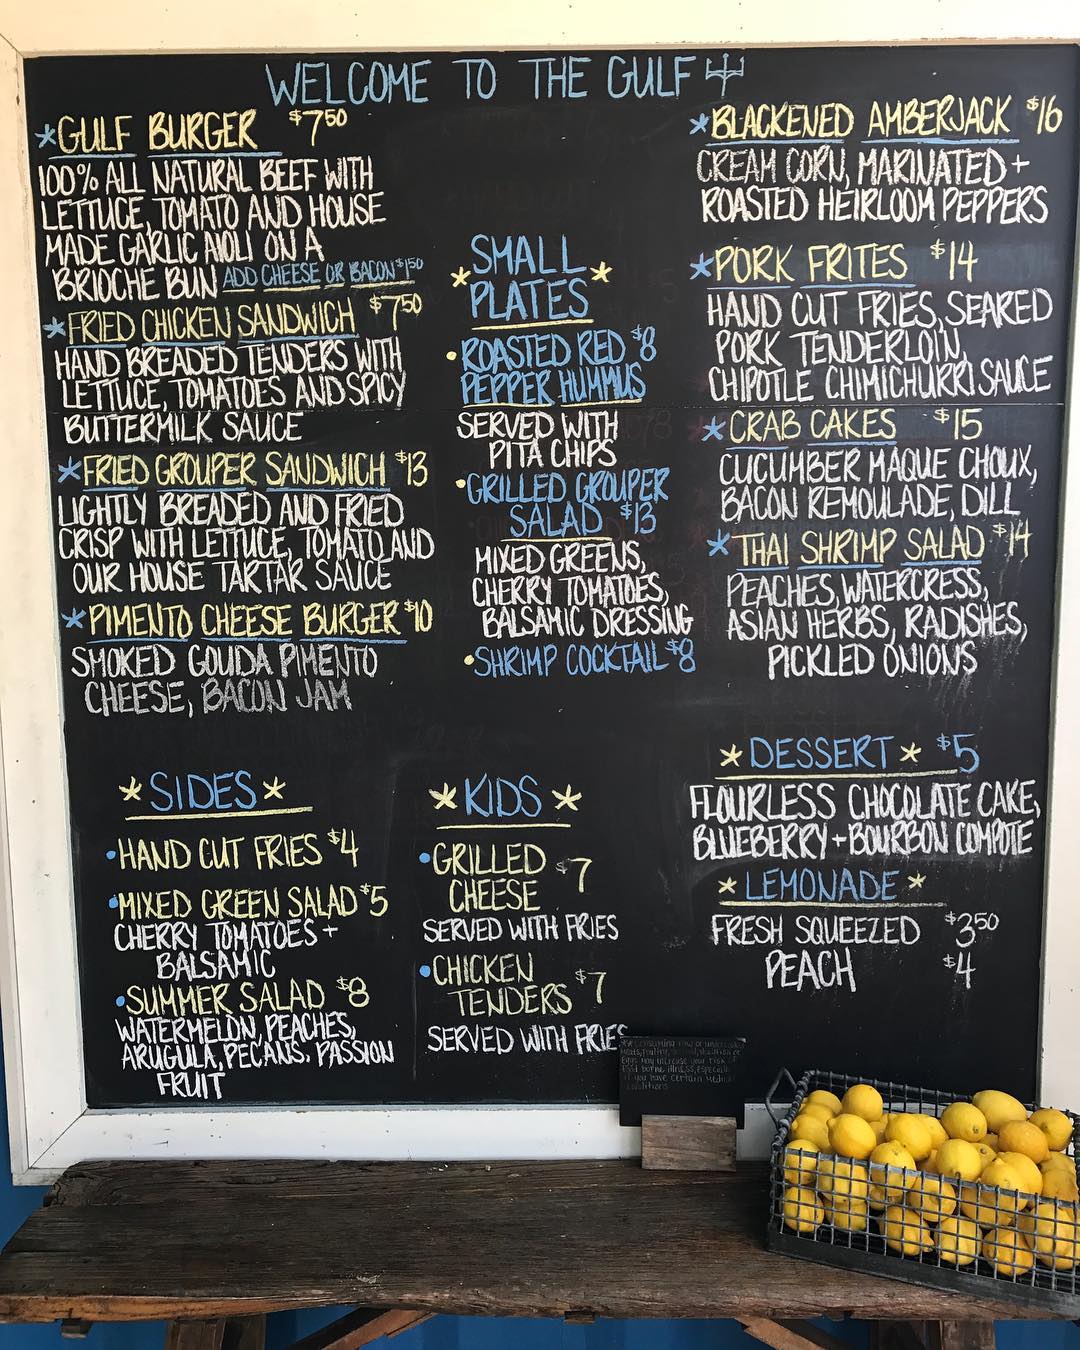 WELCOME TO THE GULF
*GULF BURGER $7 50
100% ALL NATURAL BEEF WITH
LETTUCE, TOMATO AND HOUSE
MADE GARLIC AIOLI ON A
BRIOCHE BUN ADD CHEESE OR BACON $1 50
*FRIED CHICKEN SANDWICH $7 50
HAND BREADED TENDERS WITH
LETTUCE, TOMATOES AND SPICY
BUTTERMILK SAUCE
*FRIED GROUPER SANDWICH $13
LIGHTLY BREADED AND FRIED
CRISP WITH LETTUCE, TOMATO AND
OUR HOUSE TARTAR SAUCE
*PIMENTO CHEESE BURGER $10
SMOKED GOUDA PIMENTO
CHEESE, BACON JAM
*SMALL
PLATES*
•ROASTED RED $8
PEPPER HUMMUS
SERVED WITH
PITA CHIPS
•GRILLED GROUPER
SALAD $13
MIXED GREENS,
CHERRY TOMATOES,
BALSAMIC DRESSING
•SHRIMP COCKTAIL $8
*BLACKENED AMBERJACK $16
CREAM CORN, MARINATED +
ROASTED HEIRLOOM PEPPERS
*PORK FRITES $14
HAND CUT FRIES, SEARED
PORK TENDERLOIN,
CHIPOTLE CHIMICHURRI SAUCE
*CRAB CAKES $15
CUCUMBER MAQUE CHOUX,
BACON REMOULADE, DILL
*THAI SHRIMP SALAD $14
PEACHES, WATERCRESS,
ASIAN HERBS, RADISHES,
PICKLED ONIONS
*SIDES*
•HAND CUT FRIES $4
•MIXED GREEN SALAD $5
CHERRY TOMATOES +
BALSAMIC
•SUMMER SALAD $8
WATERMELON, PEACHES,
ARUGULA, PECANS, PASSION
FRUIT
*KIDS*
•GRILLED $7
CHEESE
SERVED WITH FRIES
•CHICKEN $7
TENDERS
SERVED WITH FRIES
*DESSERT* $5
FLOURLESS CHOCOLATE CAKE,
BLUEBERRY + BOURBON COMPOTE
*LEMONADE*
FRESH SQUEEZED $3 50
PEACH $4
consuming raw or
meats, poultry,
eggs may increase your risk
food borne illness, especially
if you have certain
conditions